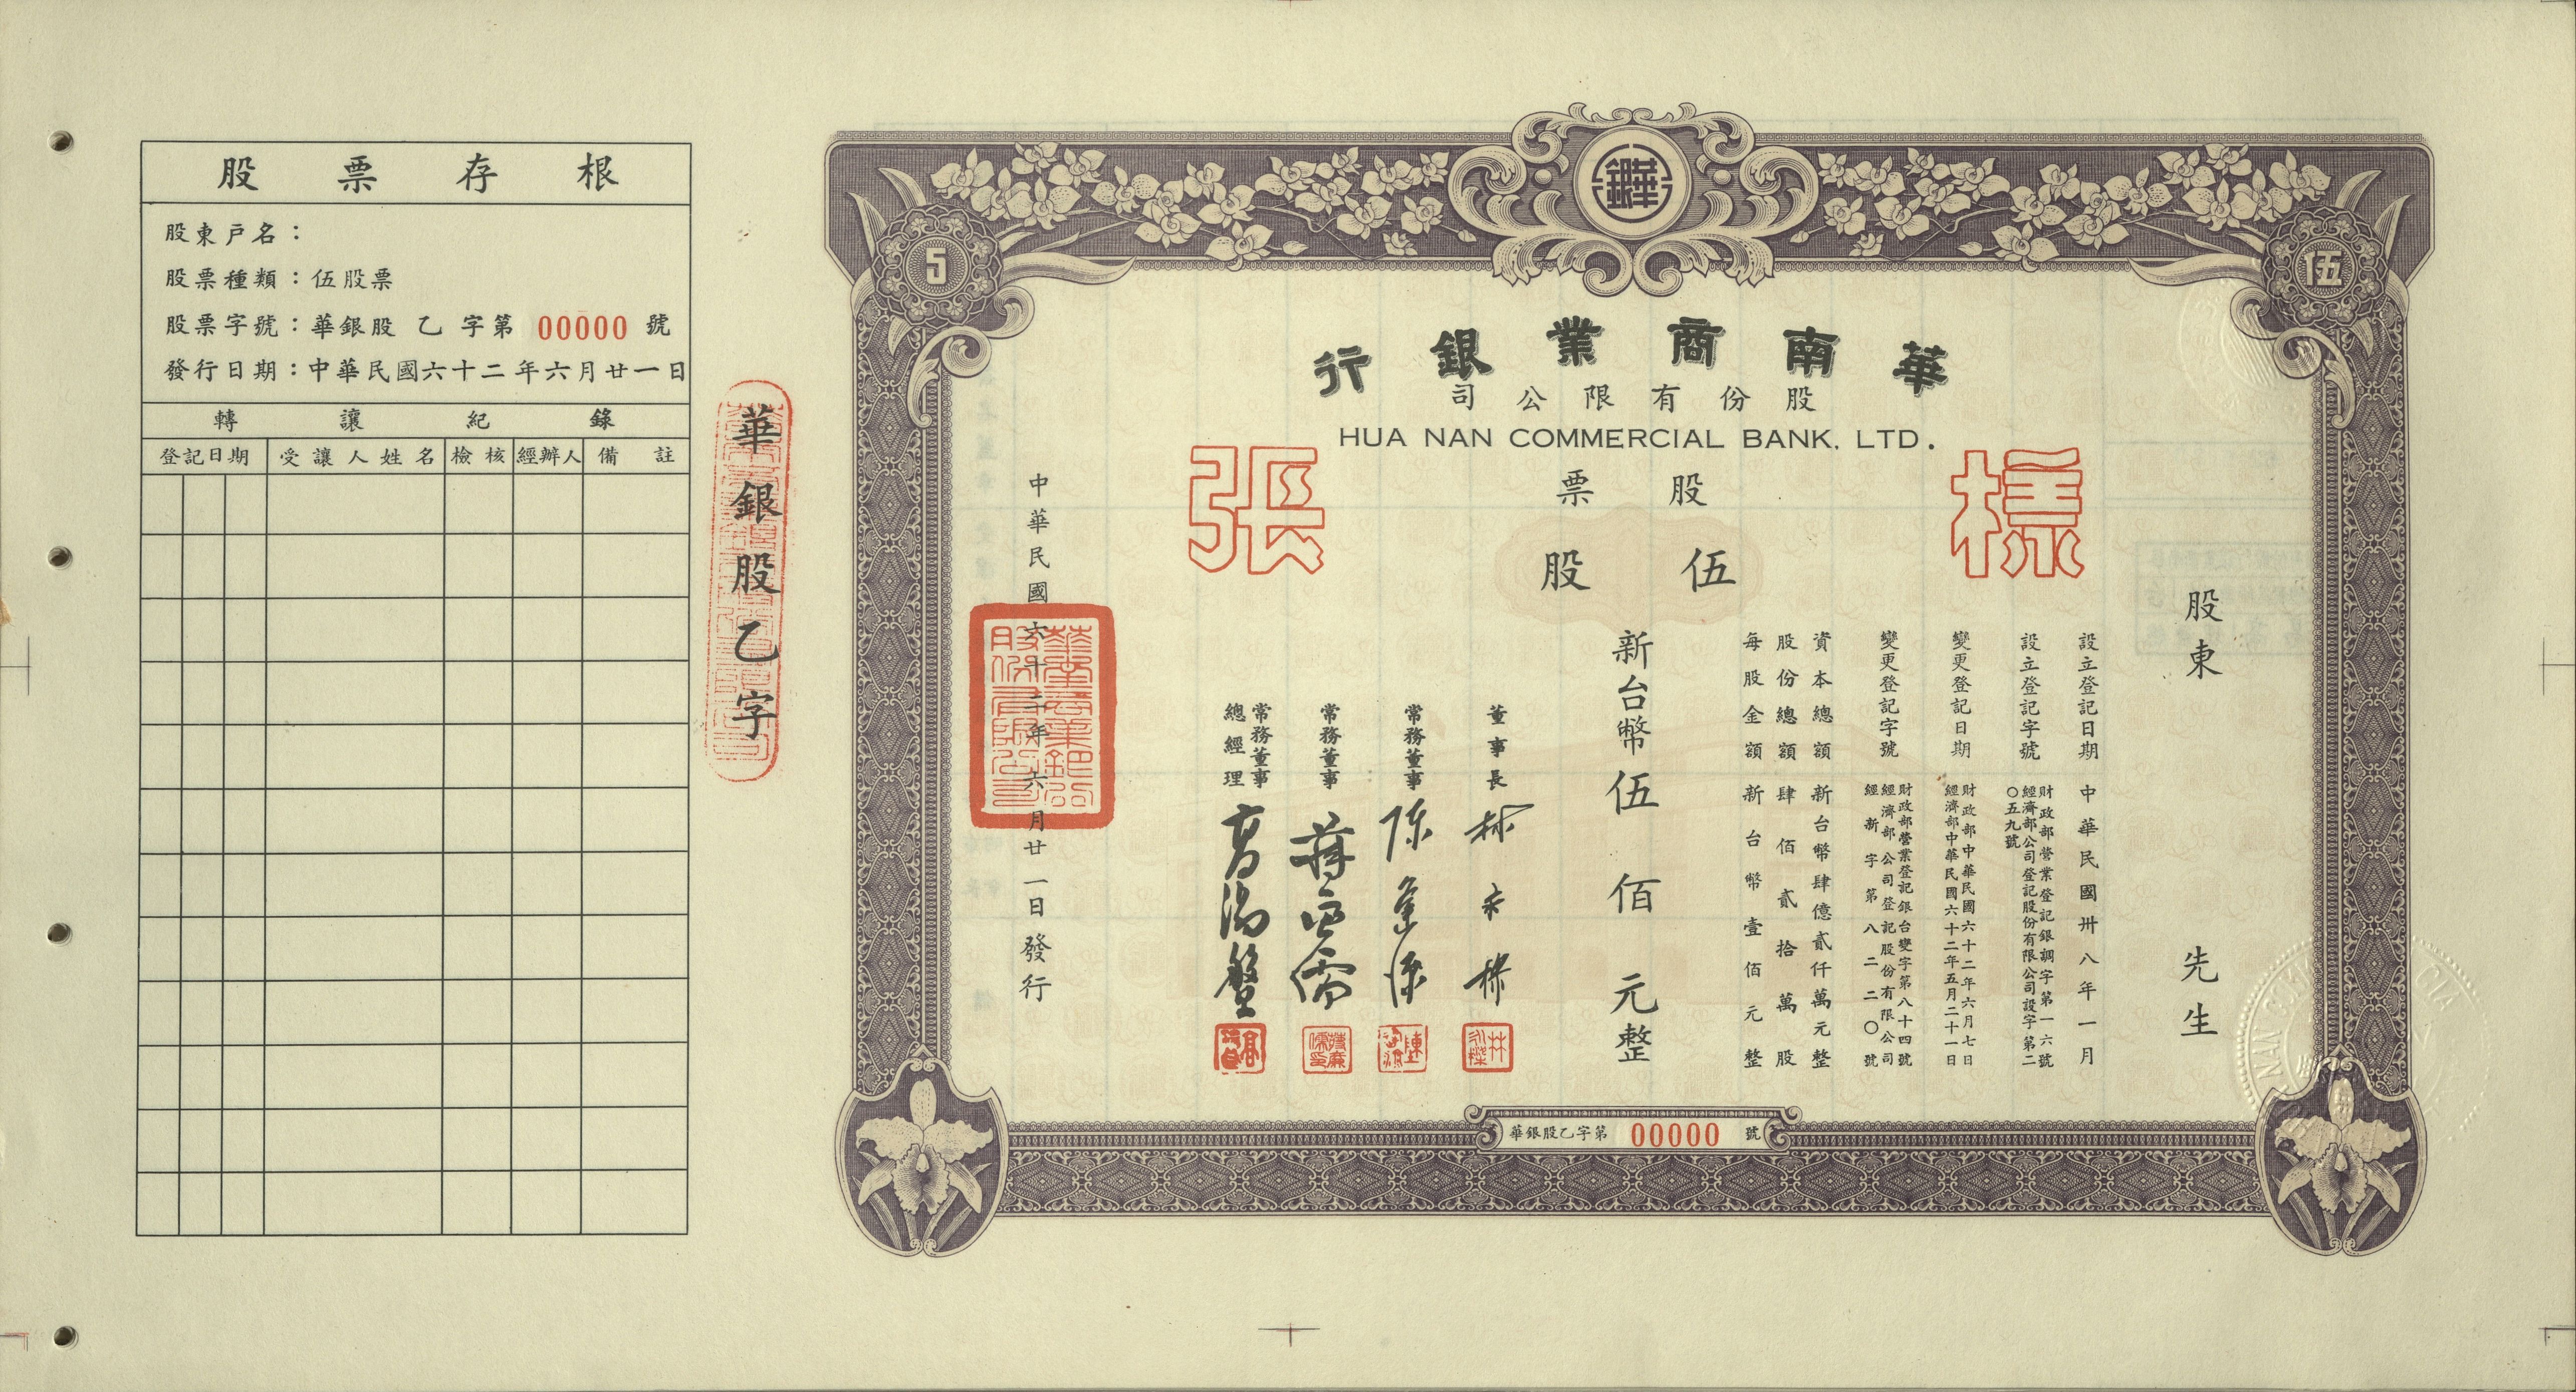 股票存根
股東戶名：
股票種類：伍股票
股票字號：華銀股 乙 字第 00000 號
發行日期：中華民國六十二年六月廿一日
轉讓紀錄
登記日期 受讓人姓名 檢核 經辦人 備註
華銀股乙字
5
華銀
伍
華南商業銀行
股份有限公司
HUA NAN COMMERCIAL BANK, LTD.
樣張
股票
伍股
股東 先生
設立登記日期 中華民國卅八年一月
設立登記字號 財政部營業登記銀調字第一六號
經濟部公司登記股份有限公司設字第二
〇五九號
變更登記日期 財政部中華民國六十二年六月七日
經濟部中華民國六十二年五月二十一日
變更登記字號 財政部營業登記銀台變字第八十四號
經濟部公司登記股份有限公司
經新字第八二二〇號
資本總額 新台幣肆億貳仟萬元整
股份總額 肆佰貳拾萬股
每股金額 新台幣壹佰元整
新台幣伍佰元整
董事長
常務董事
常務董事
常務董事
總經理
中華民國六十二年六月廿一日發行
華銀股乙字第 00000 號